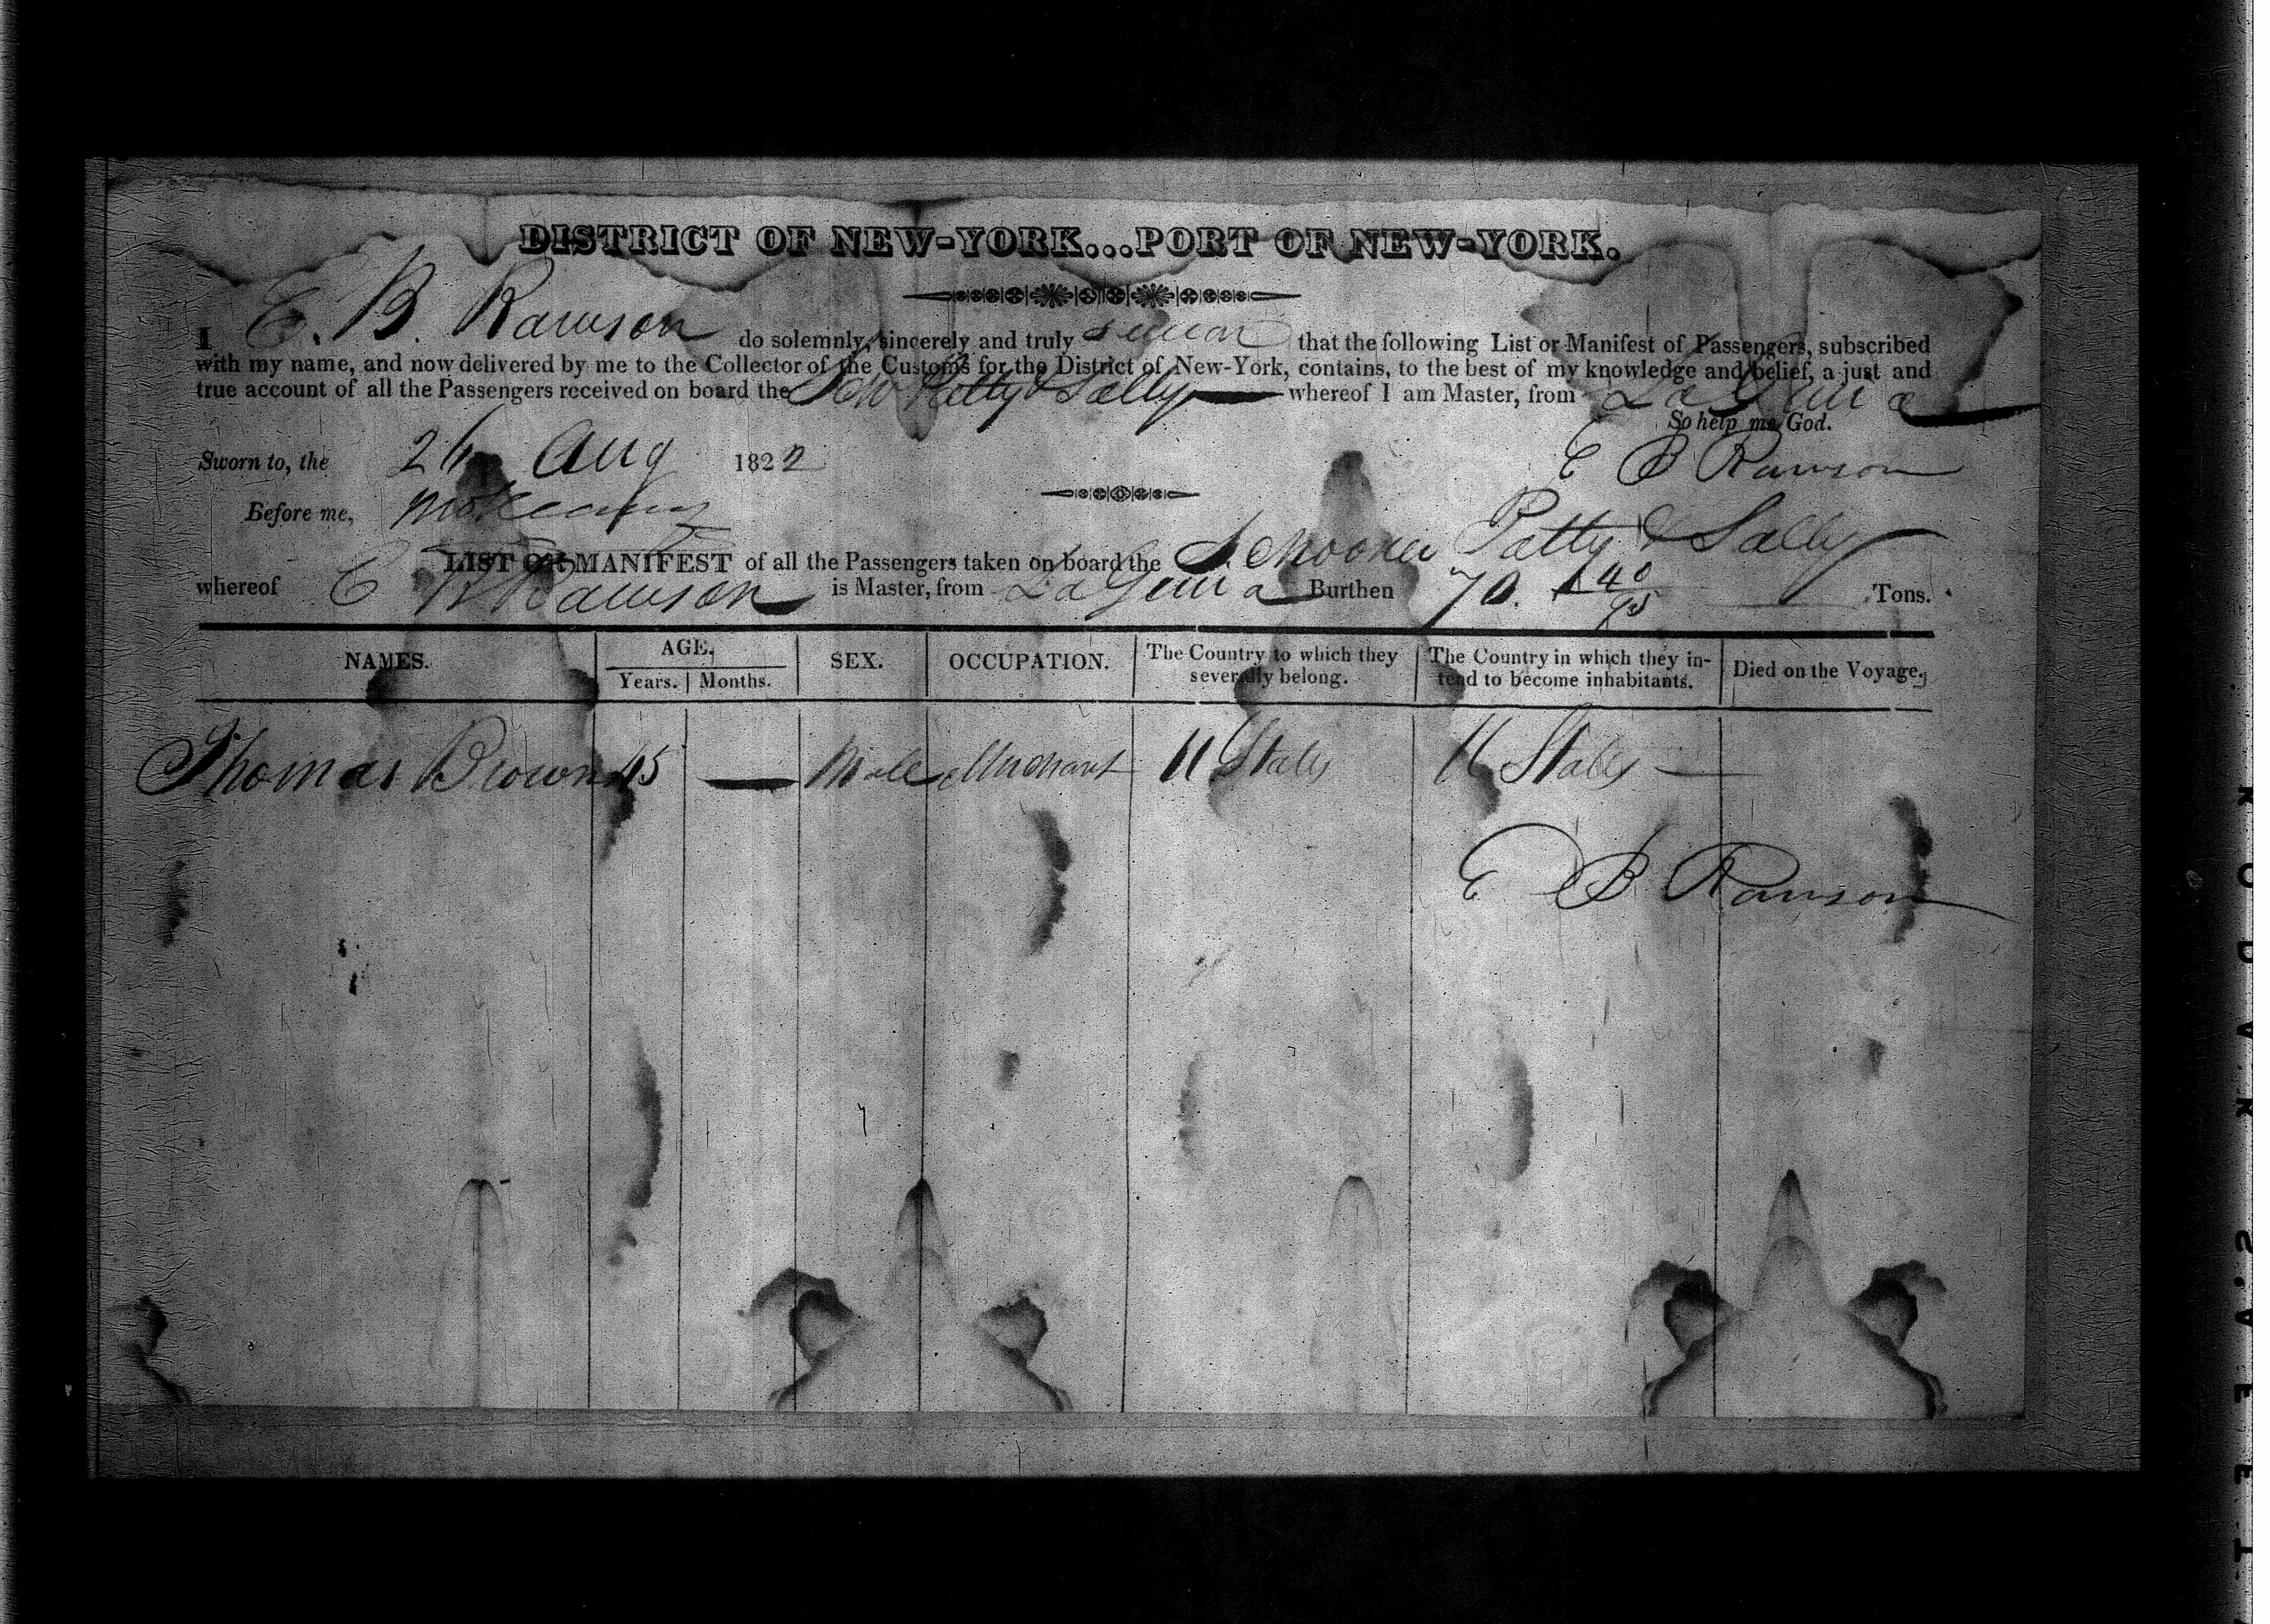 DISTRICT OF NEW-YORK...PORT OF NEW-YORK.
I E. B. Rawson do solemnly, sincerely and truly swear that the following List or Manifest of Passengers, subscribed
with my name, and now delivered by me to the Collector of the Customs for the District of New-York, contains, to the best of my knowledge and belief, a just and
true account of all the Passengers received on board the Schr Patty & Sally whereof I am Master, from La Guira
So help me God.
Sworn to, the 26 Aug 1822
E B Rawson
Before me,
LIST OR MANIFEST of all the Passengers taken on board the Schooner Patty & Sally
whereof E B Rawson is Master, from La Guira Burthen 70. 40/95 Tons.
NAMES. AGE. SEX. OCCUPATION. The Country to which they severally belong. The Country in which they intend to become inhabitants. Died on the Voyage.
Years. Months.
Thomas Brown 45 — Male Merchant U States U States —
E B Rawson